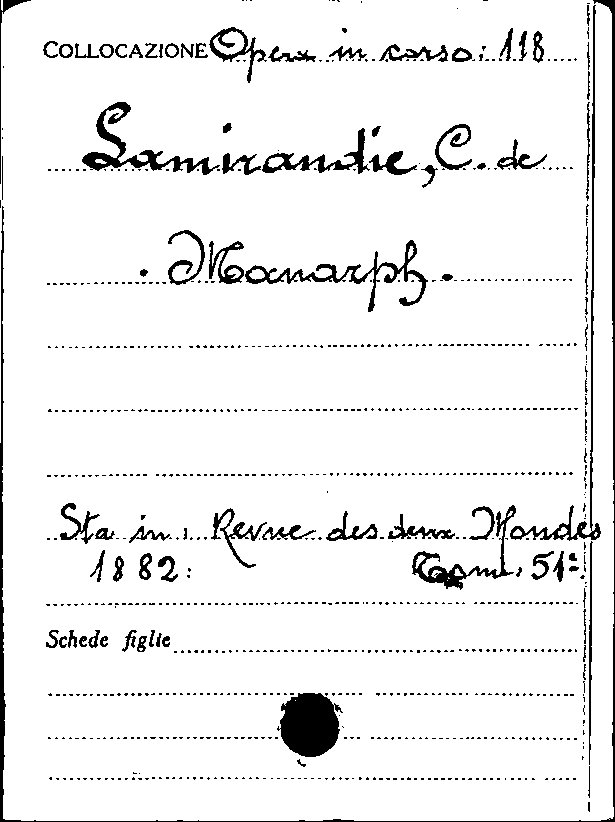 COLLOCAZIONE Opera in corso: 118
Lamirandie, C. de
. Manarph.
Sta in: Revue des deux Mondes
1882: Tom: 51º.
Schede figlie